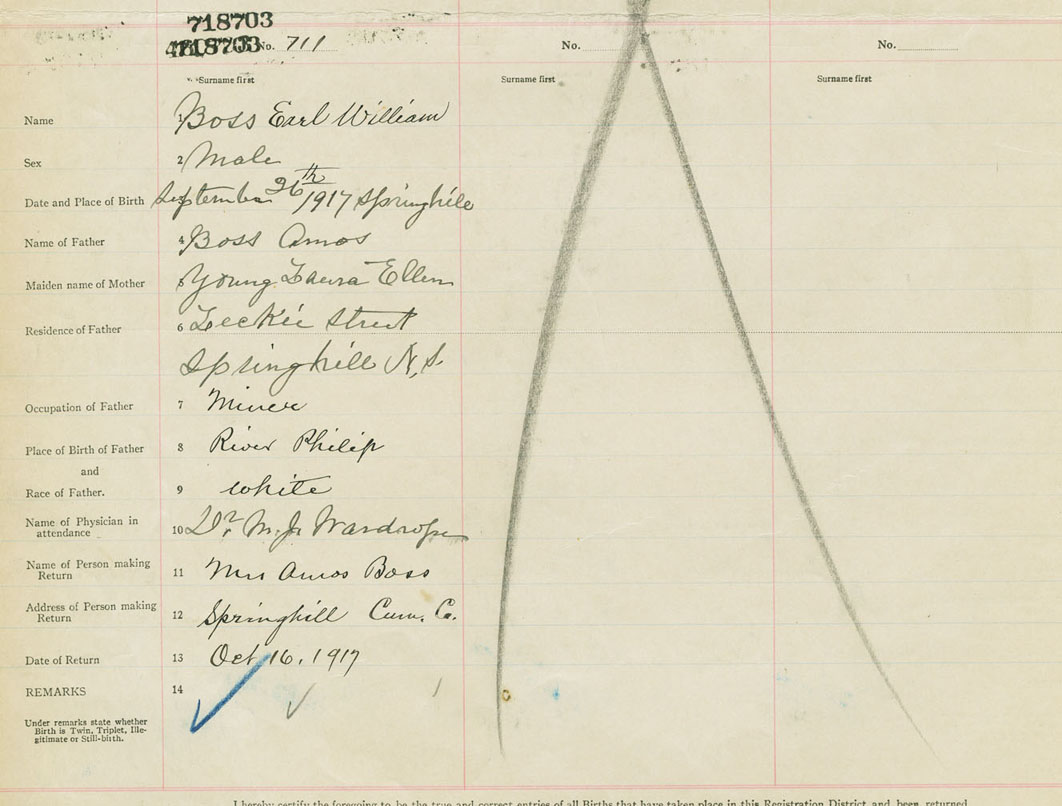 718703
718703 No. 711
No.
No.
Surname first
Surname first
Surname first
Name 1 Boss Earl William
Sex 2 Male
Date and Place of Birth 3 September 26th 1917 Springhill
Name of Father 4 Boss Amos
Maiden name of Mother 5 Young Laura Ellen
Residence of Father 6 Leckie Street
Springhill N.S.
Occupation of Father 7 Miner
Place of Birth of Father 8 River Philip
and
Race of Father. 9 white
Name of Physician in
attendance 10 Dr. M. J. Wardrope
Name of Person making
Return 11 Mrs Amos Boss
Address of Person making
Return 12 Springhill Cum. Co.
Date of Return 13 Oct 16, 1917
REMARKS 14
Under remarks state whether
Birth is Twin, Triplet, Ille-
gitimate or Still-birth.
I hereby certify the foregoing to be the true and correct entries of all Births that have taken place in this Registration District and been returned